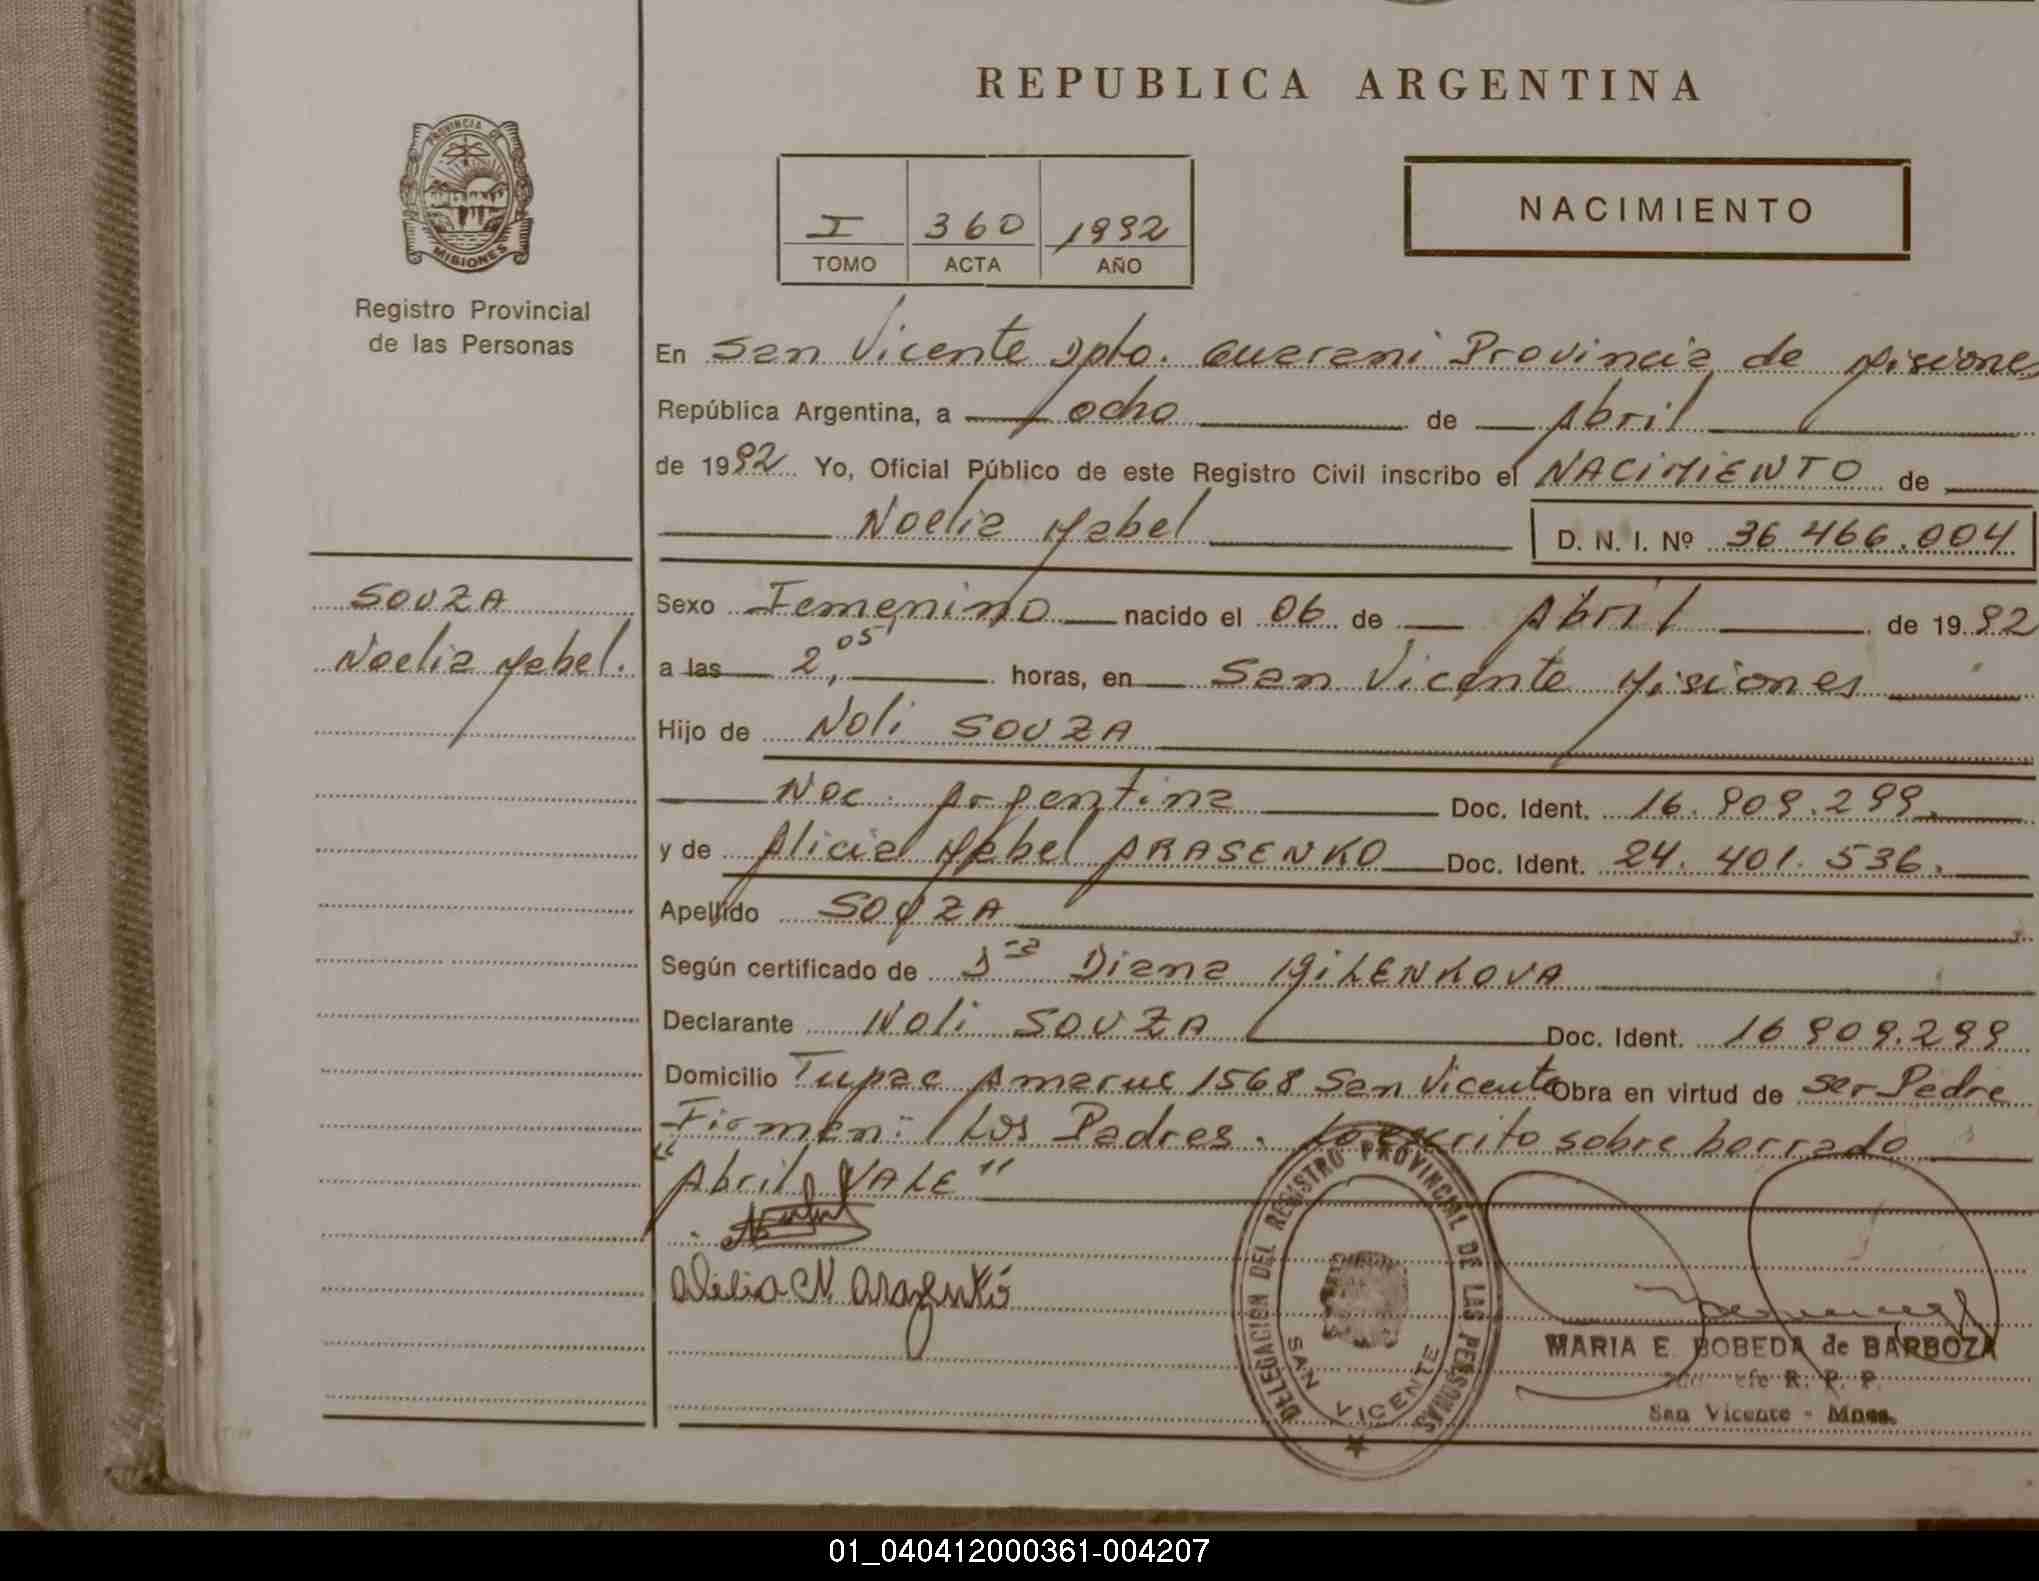 REPUBLICA ARGENTINA
PROVINCIA DE
MISIONES
Registro Provincial
de las Personas
I 360 1992
TOMO ACTA AÑO
NACIMIENTO
En San Vicente Dpto. Guarani Provincia de Misiones
República Argentina, a ocho de Abril
de 1992 Yo, Oficial Público de este Registro Civil inscribo el NACIMIENTO de
Noelia Mabel D. N. I. Nº 36 466.004
SOUZA
Noelia Mabel.
Sexo Femenino nacido el 06 de Abril de 1992
a las 2,05 horas, en San Vicente Misiones
Hijo de Noli SOUZA
Nac. Argentina Doc. Ident. 16.909.299.
y de Alicia Mabel ARASENKO Doc. Ident. 24.401.536.
Apellido SOUZA
Según certificado de Dra Diana MILENKOVA
Declarante Noli SOUZA Doc. Ident. 16 909.299
Domicilio Tupac Amaruc 1568 San Vicente Obra en virtud de ser Padre
Firman: Los Padres. Lo escrito sobre borrado
"Abril VALE"
Alicia M. Arasenko
DELEGACION DEL REGISTRO PROVINCIAL DE LAS PERSONAS
SAN VICENTE
MARIA E. BOBEDA de BARBOZA
R. P. P.
San Vicente - Mnes.
01_040412000361-004207